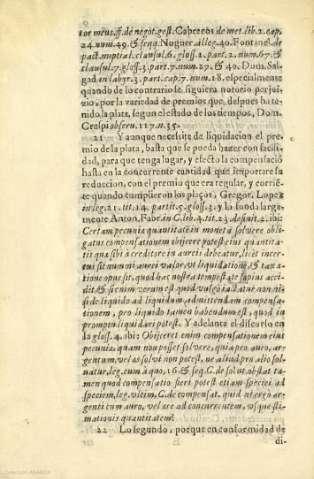 tor meus, ff. de negot. gest. Capec. dec. de met. lib. 2. cap.
24. num. 49. & seqq. Noguer. alleg. 40. Fontanel. de
pact. nuptial. clausul. 6. gloss. 1. part. 2. num. 67. &
clausul. 7. gloss. 3. part. 7. num. 27. & 40. Dom. Sal-
gad. in labyr. 3. part. cap. 7. num. 18. especialmente
quando de lo contrario se siguiera notorio perjui-
zio, por la variedad de premios que, despues ha te-
nido, la plata, segun el estado de los tiempos, Dom.
Crespi observ. 117. n. 35.
21 Y aunque necesite de liquidacion el pre-
mio de la plata, basta que se pueda hazer con facili-
dad, para que tenga lugar, y efecto la compensaciõ
hasta en la concurrente cantidad que importare su
reduccion, con el premio que era regular, y corriê-
te quando cumplieron los plaços, Gregor. Lopez
in leg. 21. tit. 14. part. 5. gloss. 3. y la funda larga-
mente Anton. Fabr. in C. lib. 4. tit. 23. definit. 2. ibi:
Certam pecuniæ quantitatem in moneta solvere obli-
gatus compensationem obijcere potest eius quantita-
tis quæ sibi à creditore in aureis debeatur, licèt incer-
tus sit nummi aurei valor, ut liquidatione, & taxa-
tione opus sit, quod hac nostra tempestate sæpius acci-
dit, & si enim verum est quod vulgò iactatur non ni-
si de liquido ad liquidum, admittendam compensa-
tionem, pro liquido tamen habendum est, quod in
promptu liquidari potest. Y adelante el discurso en
la gloss. 4. ibi: Obijceret enim compensationem eius
pecuniæ, quam non posset solvere, quia pro auro, ar-
gentum, vel æs solvi non potest, ne aliud pro alio sol-
vatur, leg. cum à quo, 16. & seq. C. de solut. obstat ta-
men quod compensatio fieri potest etiam speciei ad
speciem, leg. ultim. C. de compensat. quid ni ergo ar-
genti cum auro, vel ære ad concurrentem, usque æsti-
mationis quantitatem?
22 Lo segundo, porque en conformidad de
di-